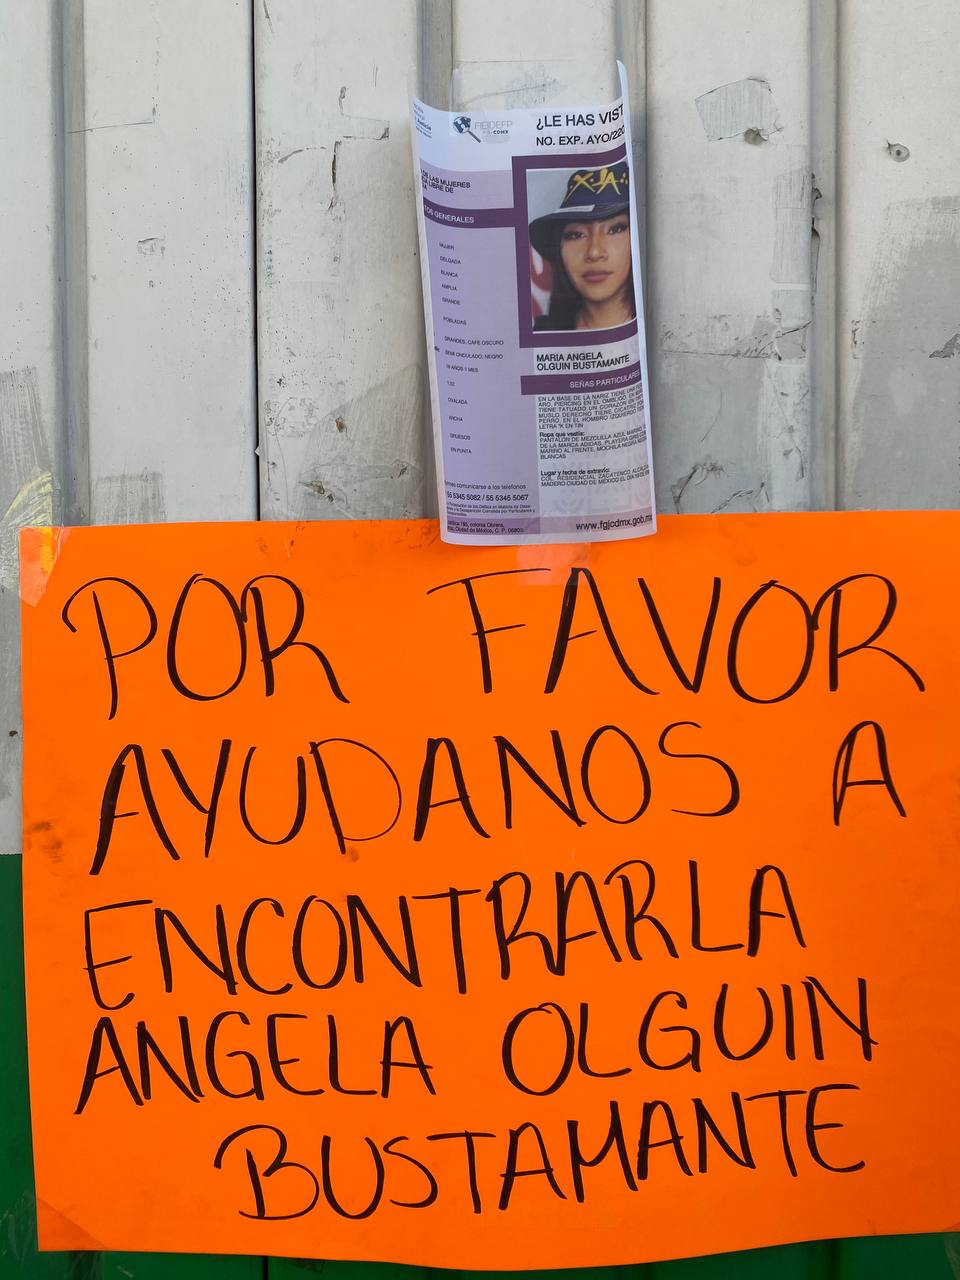 FIPEDE
CDMX
¿LE HAS VIST
NO. EXP. AYO/220
DE LAS MUJERES
LIBRE DE
GENERALES
X·JA
MUJER
DELGADA
BLANCA
AMPLIA
GRANDE
POBLADAS
GRANDES, CAFE OSCURO
SEMI ONDULADO, NEGRO
AÑOS 1 MES
1.52
OVALADA
ANCHA
GRUESOS
EN PUNTA
MARIA ANGELA
OLGUIN BUSTAMANTE
SEÑAS PARTICULARES
EN LA BASE DE LA NARIZ TIENE UNA
ARO, PIERCING EN EL OMBLIGO, EN
TIENE TATUADO UN CORAZON EN
MUSLO DERECHO TIENE CICATRIZ
PERRO, EN EL HOMBRO IZQUIERDO TIENE
LETRA "K EN TIN
Ropa que vestía:
PANTALON DE MEZCLILLA AZUL MARINO
DE LA MARCA ADIDAS, PLAYERA GRIS CON
MARINO AL FRENTE, MOCHILA NEGRA
BLANCAS
Lugar y fecha de extravío:
COL. RESIDENCIAL ZACATENCO ALCALDIA
MADERO CIUDAD DE MEXICO EL DIA 19 DE
comunicarse a los telefonos
55 5345 5082 / 55 5345 5067
de los Delitos en Materia de
la Desaparición Cometida por Particulares y
185, colonia Obrera,
Ciudad de México, C. P. 06800
www.fgjcdmx.gob.mx
POR FAVOR
AYUDANOS A
ENCONTRARLA
ANGELA OLGUIN
BUSTAMANTE